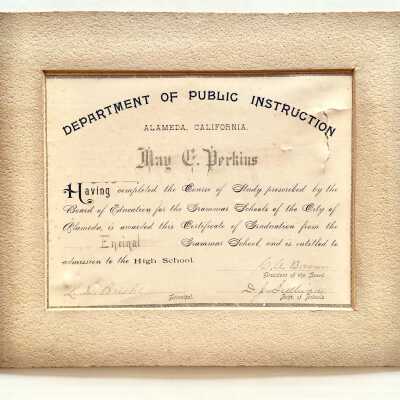 DEPARTMENT OF PUBLIC INSTRUCTION
ALAMEDA, CALIFORNIA.
May E. Perkins
Having completed the Course of Study prescribed by the
Board of Education for the Grammar Schools of the City of
Alameda, is awarded this Certificate of Graduation from the
Encinal Grammar School, and is entitled to
admission to the High School.
President of the Board.
Principal.
Supt. of Schools.